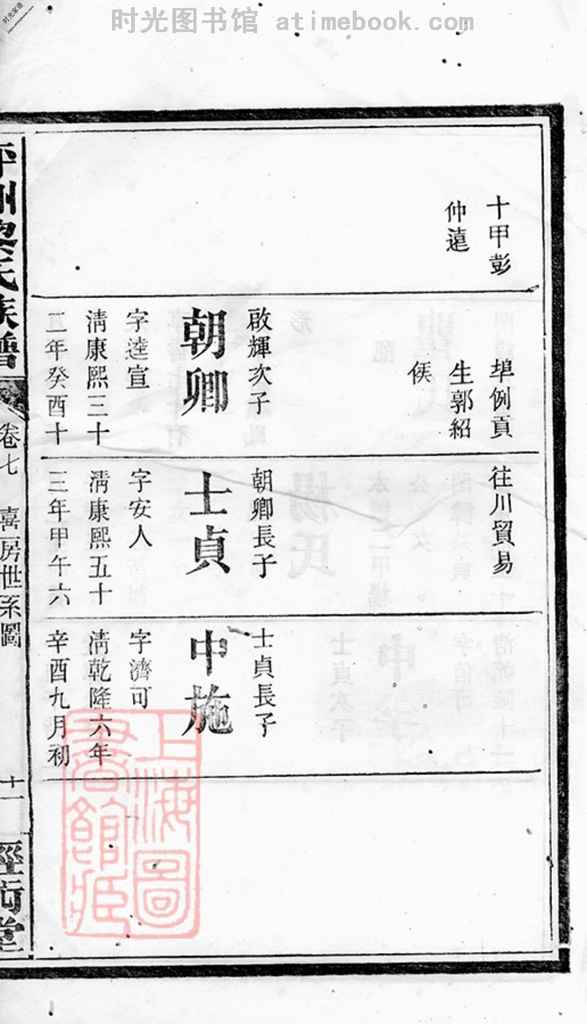 时光图书馆 atimebook.com
十甲彭
仲遠
埠例貢
生郭紹
侯
啟輝次子
朝卿
字逹宣
清康熙三十
年癸酉十
往川貿易
朝卿長子
士貞
字安人
清康熙五十
三年甲午六
士貞長子
中施
字濟可
清乾隆六年
辛酉九月初
氏族譜
卷七
喜房世系圖
十一
上海圖
書館藏